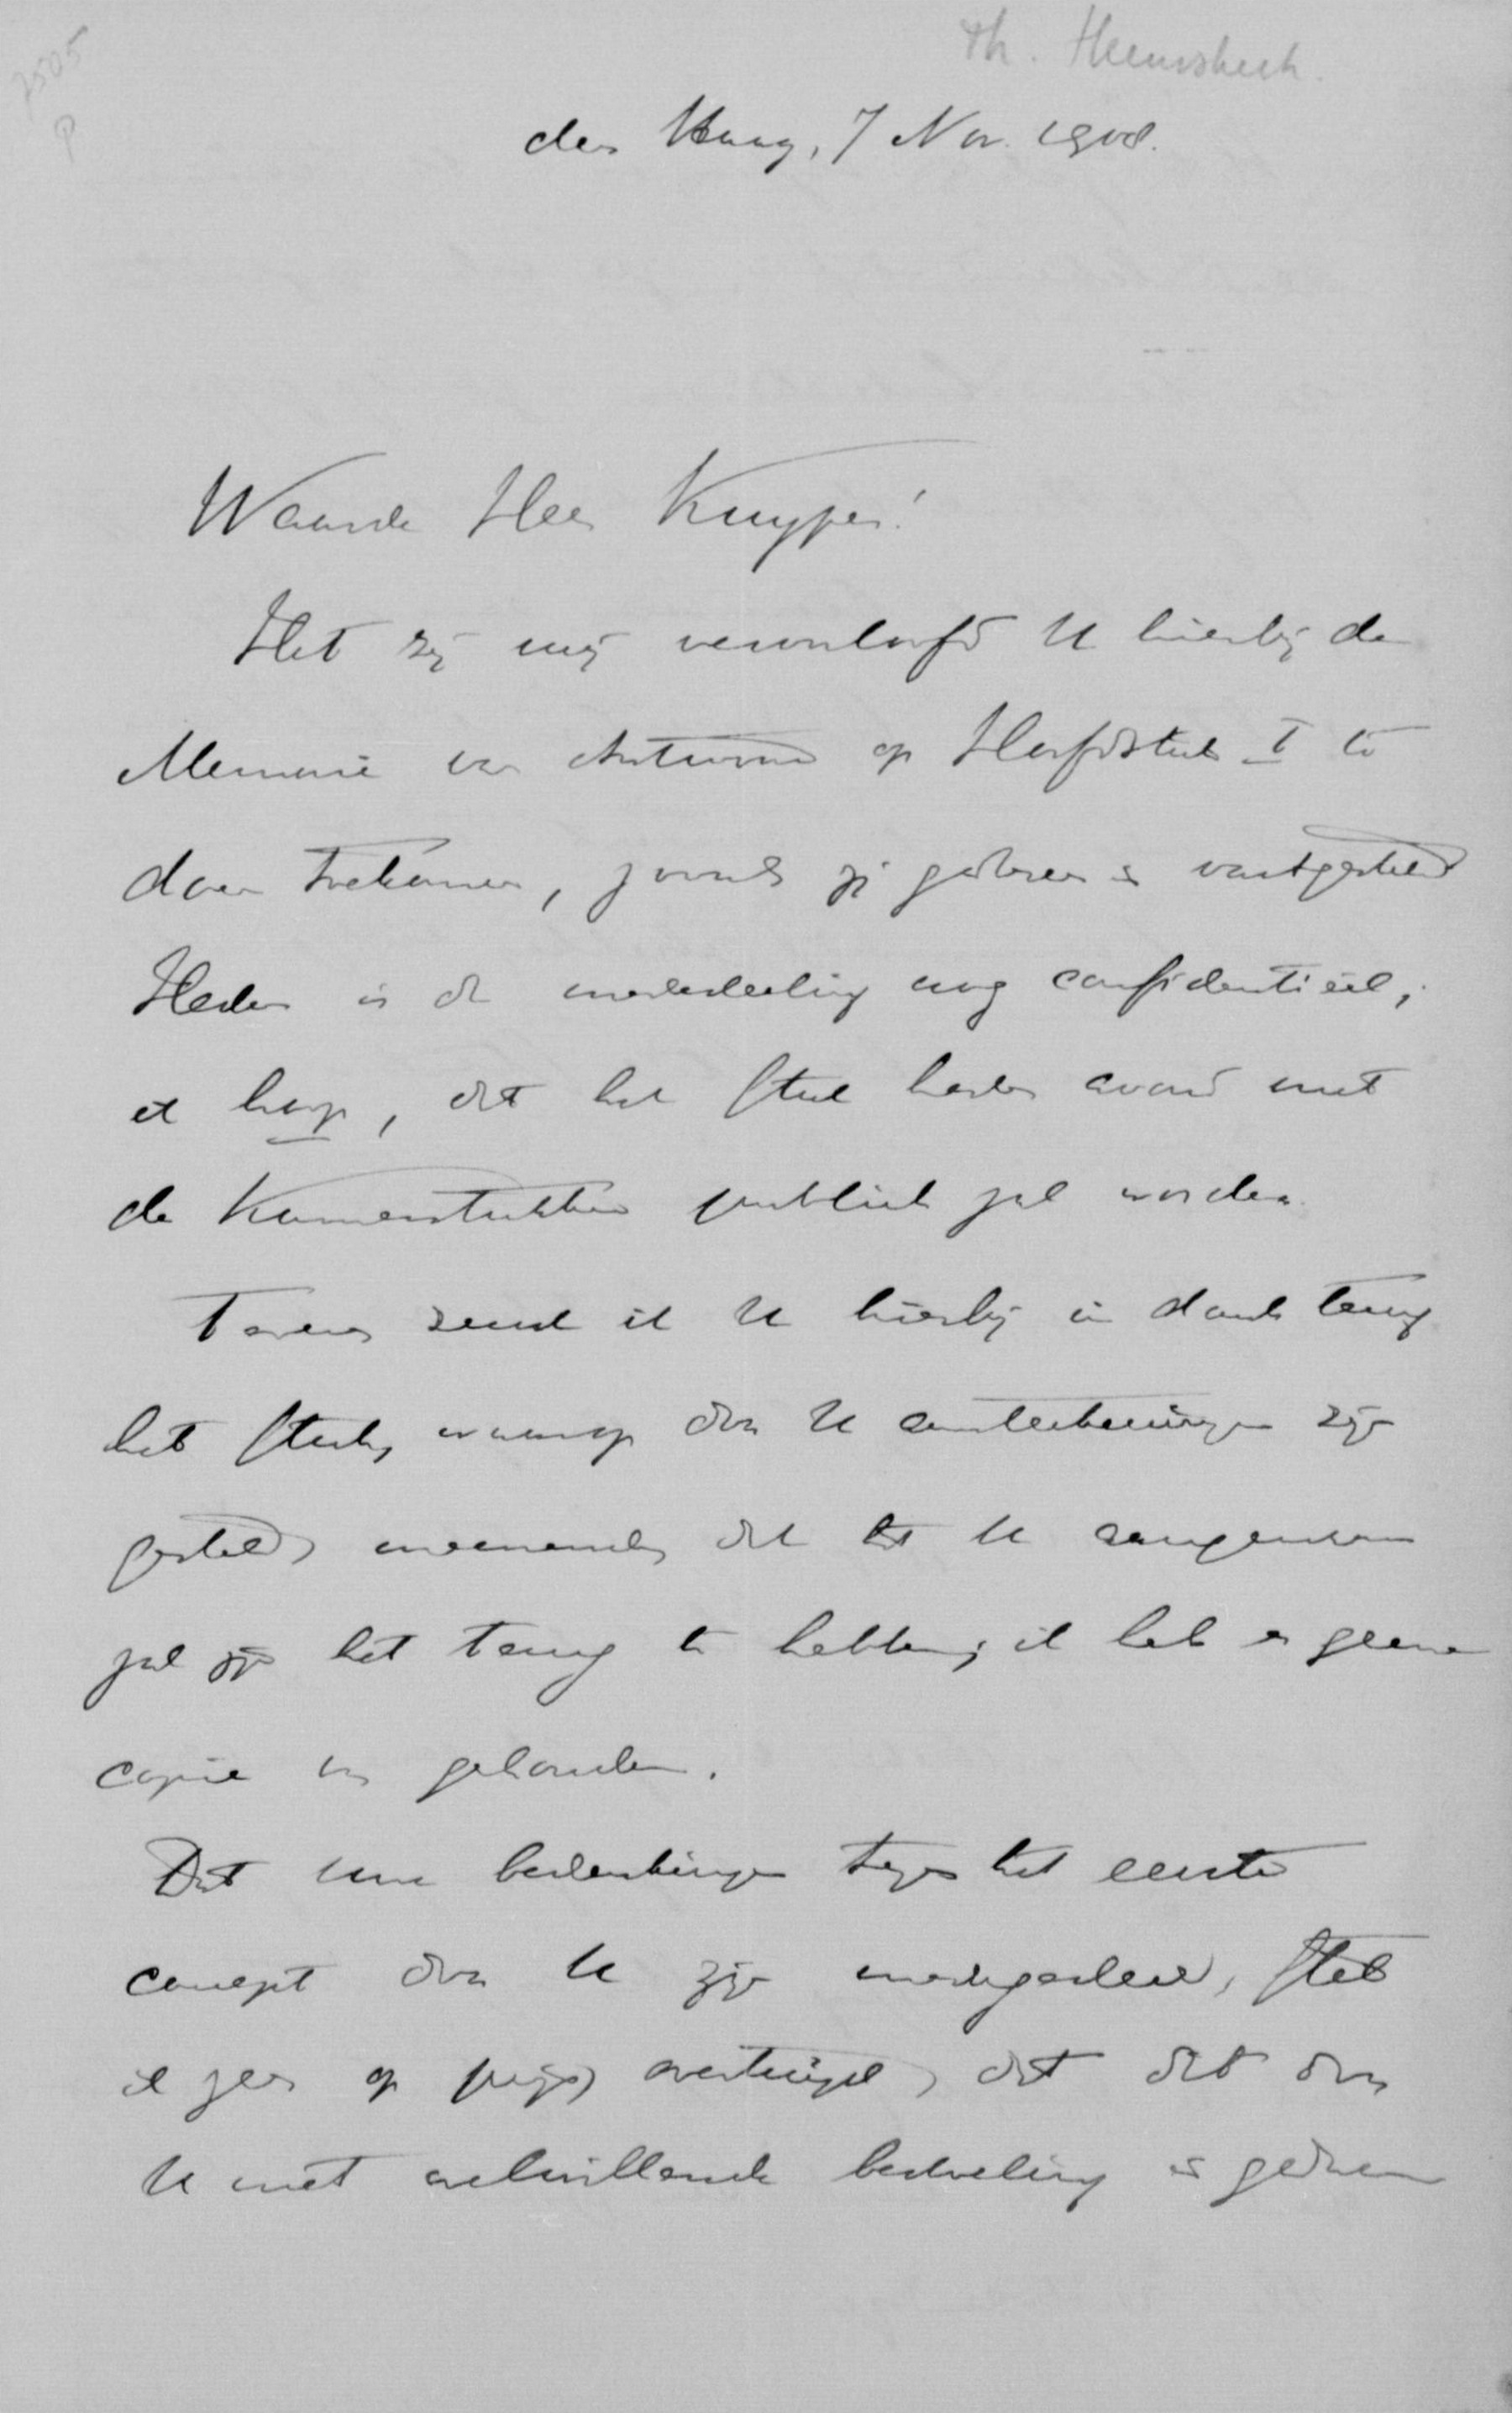 7505
P
Th. Heemskerk.
den Haag, 7 Nov. 1908.
Waarde Heer Kuyper!
Het zij mij veroorloofd U hierbij de
Memorie van Antwoord op Hoofdstuk I te
doen toekomen, zooals zij gisteren is vastgesteld
Heden is de mededeeling nog confidentieel,
ik hoop, dat het stuk heden avond met
de Kamerstukken publiek zal worden.
Tevens zend ik U hierbij in dank terug
het stuk, waarop door U aanteekeningen zijn
gesteld, meenende dat het U aangenaam
zal zijn het terug te hebben; ik heb er geene
copie van gehouden.
Dat uwe bedenkingen tegen het eerste
concept door U zijn medegedeeld, stel
ik zeer op prijs, overtuigd, dat dit door
U met welwillende bedoeling is gedaan